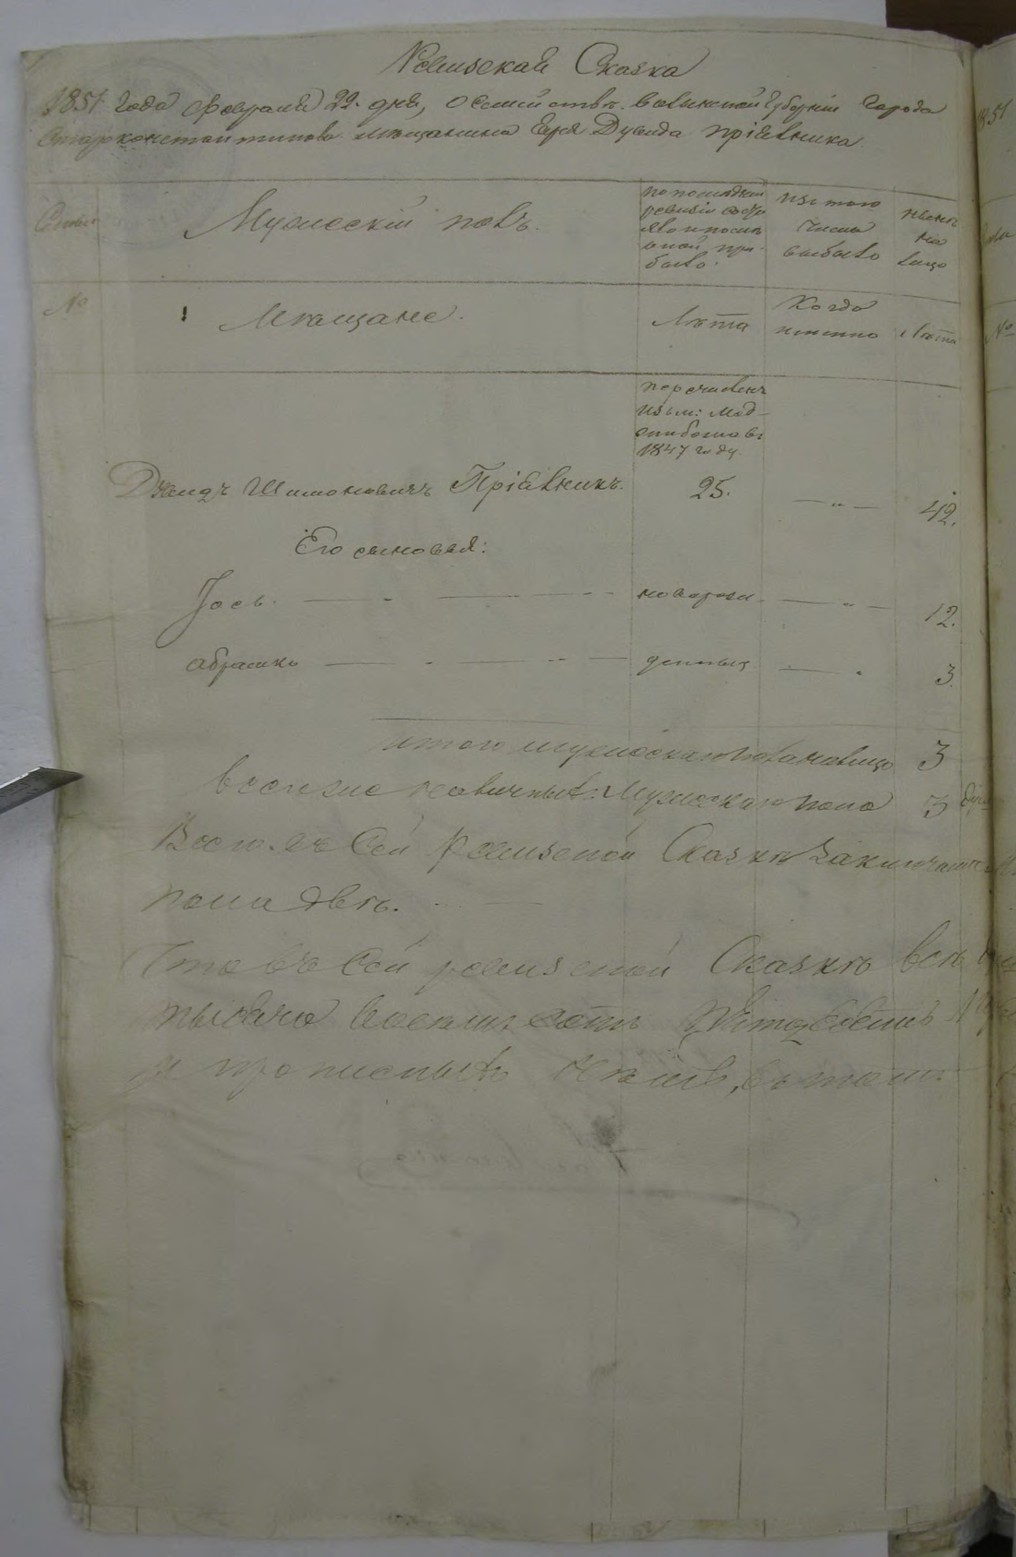 Ревизская Сказка
1851 года февраля 22 дня, о семействе Волынской Губернии города
Староконстантинова мещанина Еврея Дувида Пріявника
Семьи Мужескій полъ. по последней ревизіи состояло и после оной прибыло. изъ того числа выбыло ныне на лицо
№ Мещане. Лета Когда именно Лета
перечисленъ
изъ м: Мед-
жибожа въ
1847 году.
Дувидъ Шимоновичъ Пріявникъ. 25. — „ — 42.
Его сыновья:
Іось. новорож — „ — 12.
Абрашко денныя 3.
итого мужеска пола на лицо 3
Мужеска пола 3
Всего въ Сей ревизской Сказке заключает
пол две.
Что въ Сей ревизской Сказке все
и прописныхъ нетъ, въ том